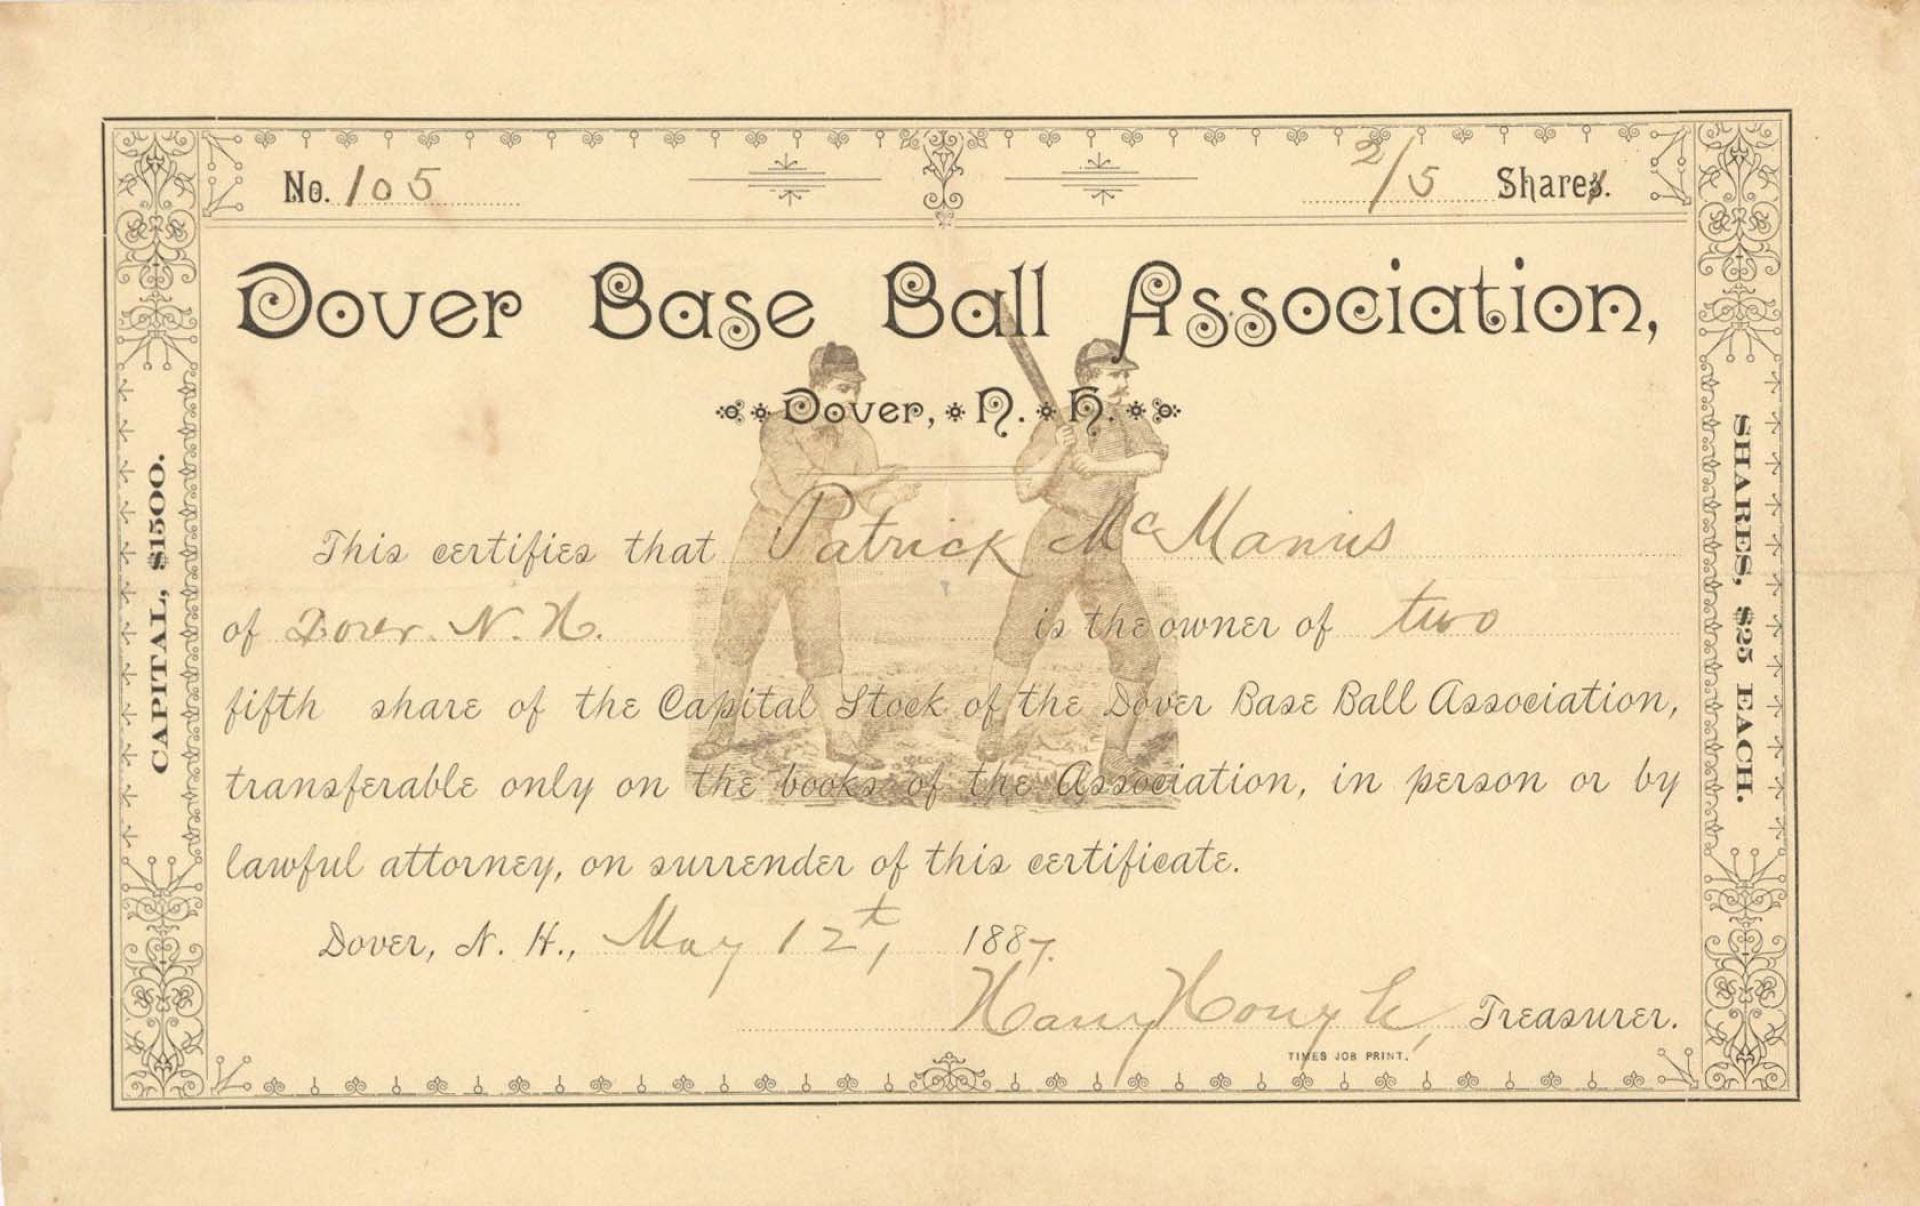 No. 105
2/5 Share.
Dover Base Ball Association,
Dover, N. H.
CAPITAL, $1500.
SHARES, $25 EACH.
This certifies that Patrick McManus
of Dover. N. H. is the owner of two
fifth share of the Capital Stock of the Dover Base Ball Association,
transferable only on the books of the Association, in person or by
lawful attorney, on surrender of this certificate.
Dover, N. H., May 12t, 1887.
Harry Treasurer.
TIMES JOB PRINT.